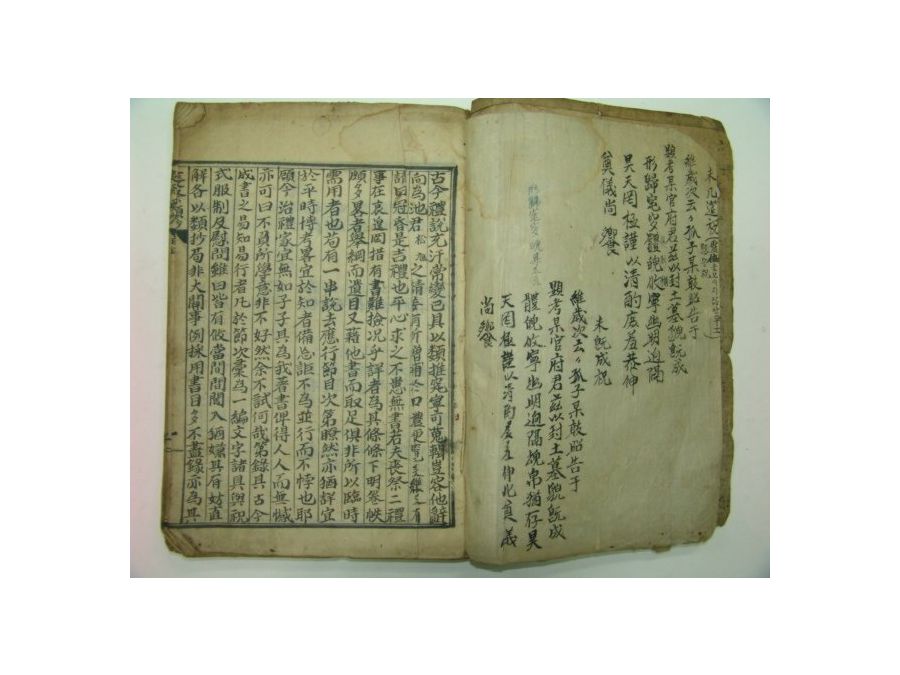 未几筵祝
維歲次云々孤子某敢昭告于
顯考某官府君玆以封土墓貌旣成
形歸窀穸體魄攸寧幽明逈隔
昊天罔極謹以淸酌庶羞恭伸
奠儀尙 饗
未旣成祝
維歲次云々孤子某敢昭告于
顯考某官府君玆以封土墓貌旣成
體魄攸寧幽明逈隔魄帛猶存昊
天罔極謹以淸酌庶羞恭伸此奠儀
尙饗
古今禮說充汗常變已具以類推究寧可蒐輯豈容他辭
向為池君松旭之請
請曰冠昏是吉禮也平心求之不患無書若夫喪祭二禮
事在哀遑罔措有書難撿况乎詳者為其條條下明卷帙
頗多畧者擧綱而遺目又藉他書而取足俱非所以臨時
需用者也苟有一串說去應行節目次第瞭然亦猶詳宜
於平時博考畧宜於知者備忽詎不為並行而不悖也耶
顧今治禮家宜無如子子其為我著書俾得人人而無憾
亦可曰不負所學意非不好然余不試何哉第錄其古今
成書之易知易行者凡於節次彙為一編文字諸具與祝
式服制及慰問雖曰皆有攸當間間闌入猶嫌其存姑直
解各以類抄局非大關事例採用書目多不盡錄亦為其